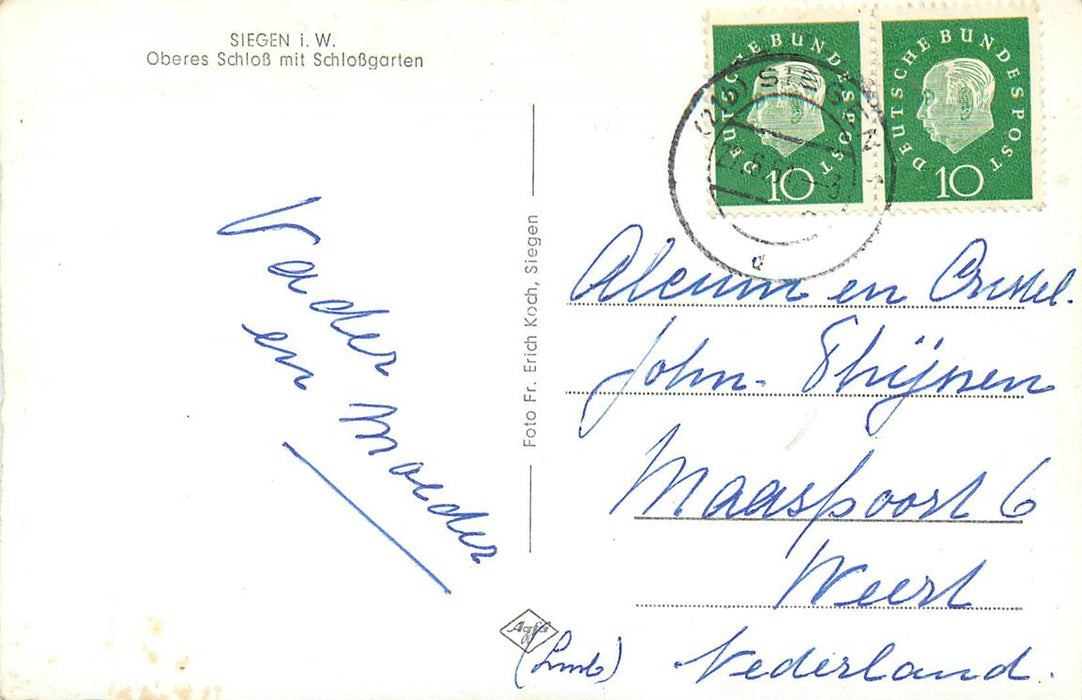 SIEGEN i. W.
Oberes Schloß mit Schloßgarten
Vader
en Moeder
Foto Fr. Erich Koch, Siegen
Agfa
DEUTSCHE BUNDESPOST
10
DEUTSCHE BUNDESPOST
10
SIEGEN 1
d
en
John. Thijssen
Maaspoort 6
Weert
(Limb) Nederland.